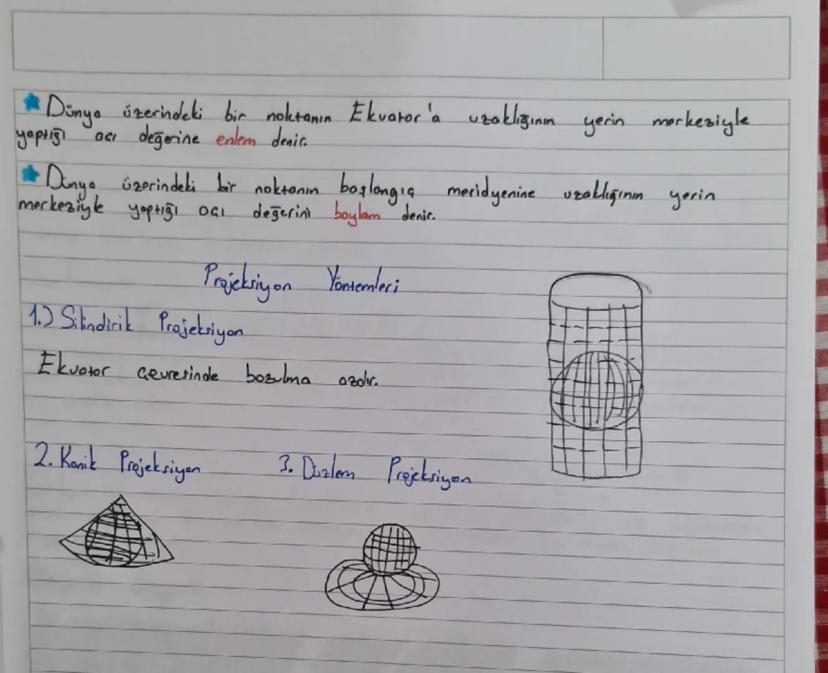 Dünya üzerindeki bir noktanın Ekvator'a uzaklığının yerin merkeziyle
yaptığı acı değerine enlem denir.
Dünya üzerindeki bir noktanın başlangıç meridyenine uzaklığının yerin
merkeziyle yaptığı açı değerini boylam denir.
Projeksiyon Yöntemleri
1.) Silindirik Projeksiyon
Ekvator çevresinde bozulma azdır.
2. Konik Projeksiyon 3. Düzlem Projeksiyon